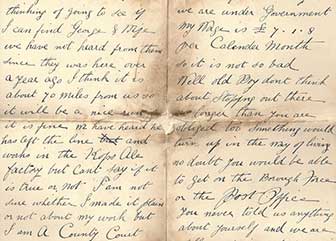 thinking of going to see if
I can find George &
we have not heard from them
since they was here over
a year ago I think it is
about 70 miles from us so
it will be a nice run if
it is fine we have heard he
has left the line and
works in the Kops Ale
factory but Cant say if it
is true or not. I am not
sure whether I made it plain
or not about my work but
I am A County Court
we are under Government
my Wage is £ 7.1.8
per Calender Month
so it is not so bad
Well old Boy dont think
about Stopping out there
longer than you are
obliged too Something would
turn up in the way of living
no doubt you would be able
to get on the Borough Force
or the Post Office
You never told us anything
about yourself and we are